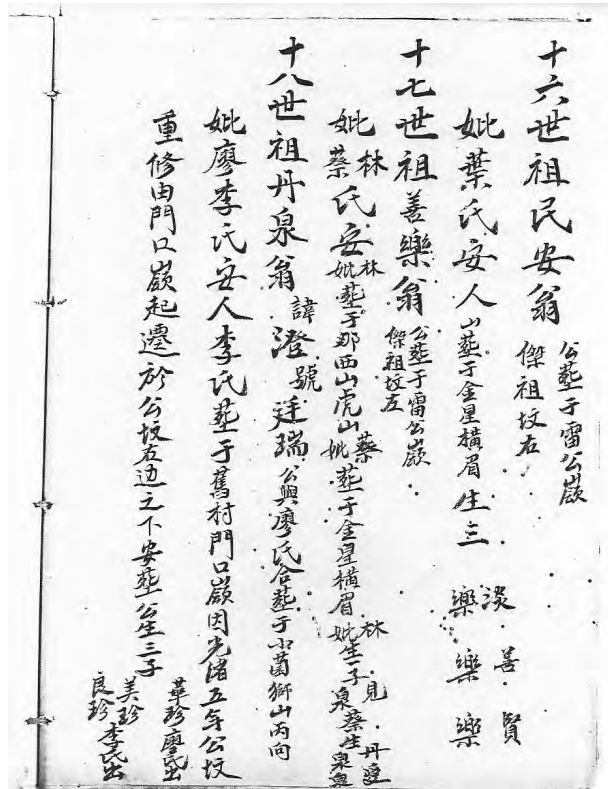 十六世祖民安翁 公塟于雷公嶺傑祖坟右
妣葉氏安人 塟于金星橫眉 生三 淡樂 善樂 賢樂
十七世祖善樂翁 公塟于雷公嶺傑祖坟左
妣林蔡氏安 林妣塟于那西山虎山 蔡妣塟于金星橫眉 林妣生一子見泉 蔡生丹泉 泉
十八世祖丹泉翁 諱澄號廷瑞 公與廖氏合塟于小茵獅山丙向
妣廖李氏安人李氏塟于舊村門口嶺因光緒五年公坟
重修由門口嶺起遷於公坟右边之下安塟公生三子
華珍廖氏出
美珍
良珍李氏出